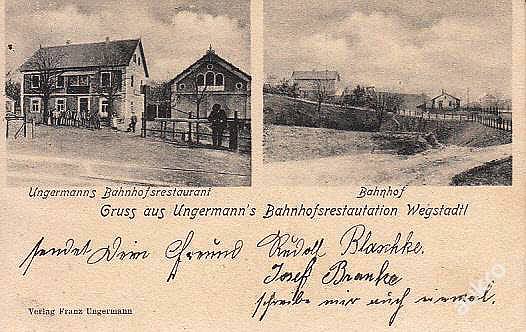 Ungermanns Bahnhofsrestaurant
Bahnhof
Gruss aus Ungermann's Bahnhofsrestautation Wegstadtl
sendet Dein Freund Rudolf Blaschke.
Josef Branke
schreibe mir auch einmal.
Verlag Franz Ungermann
aukro